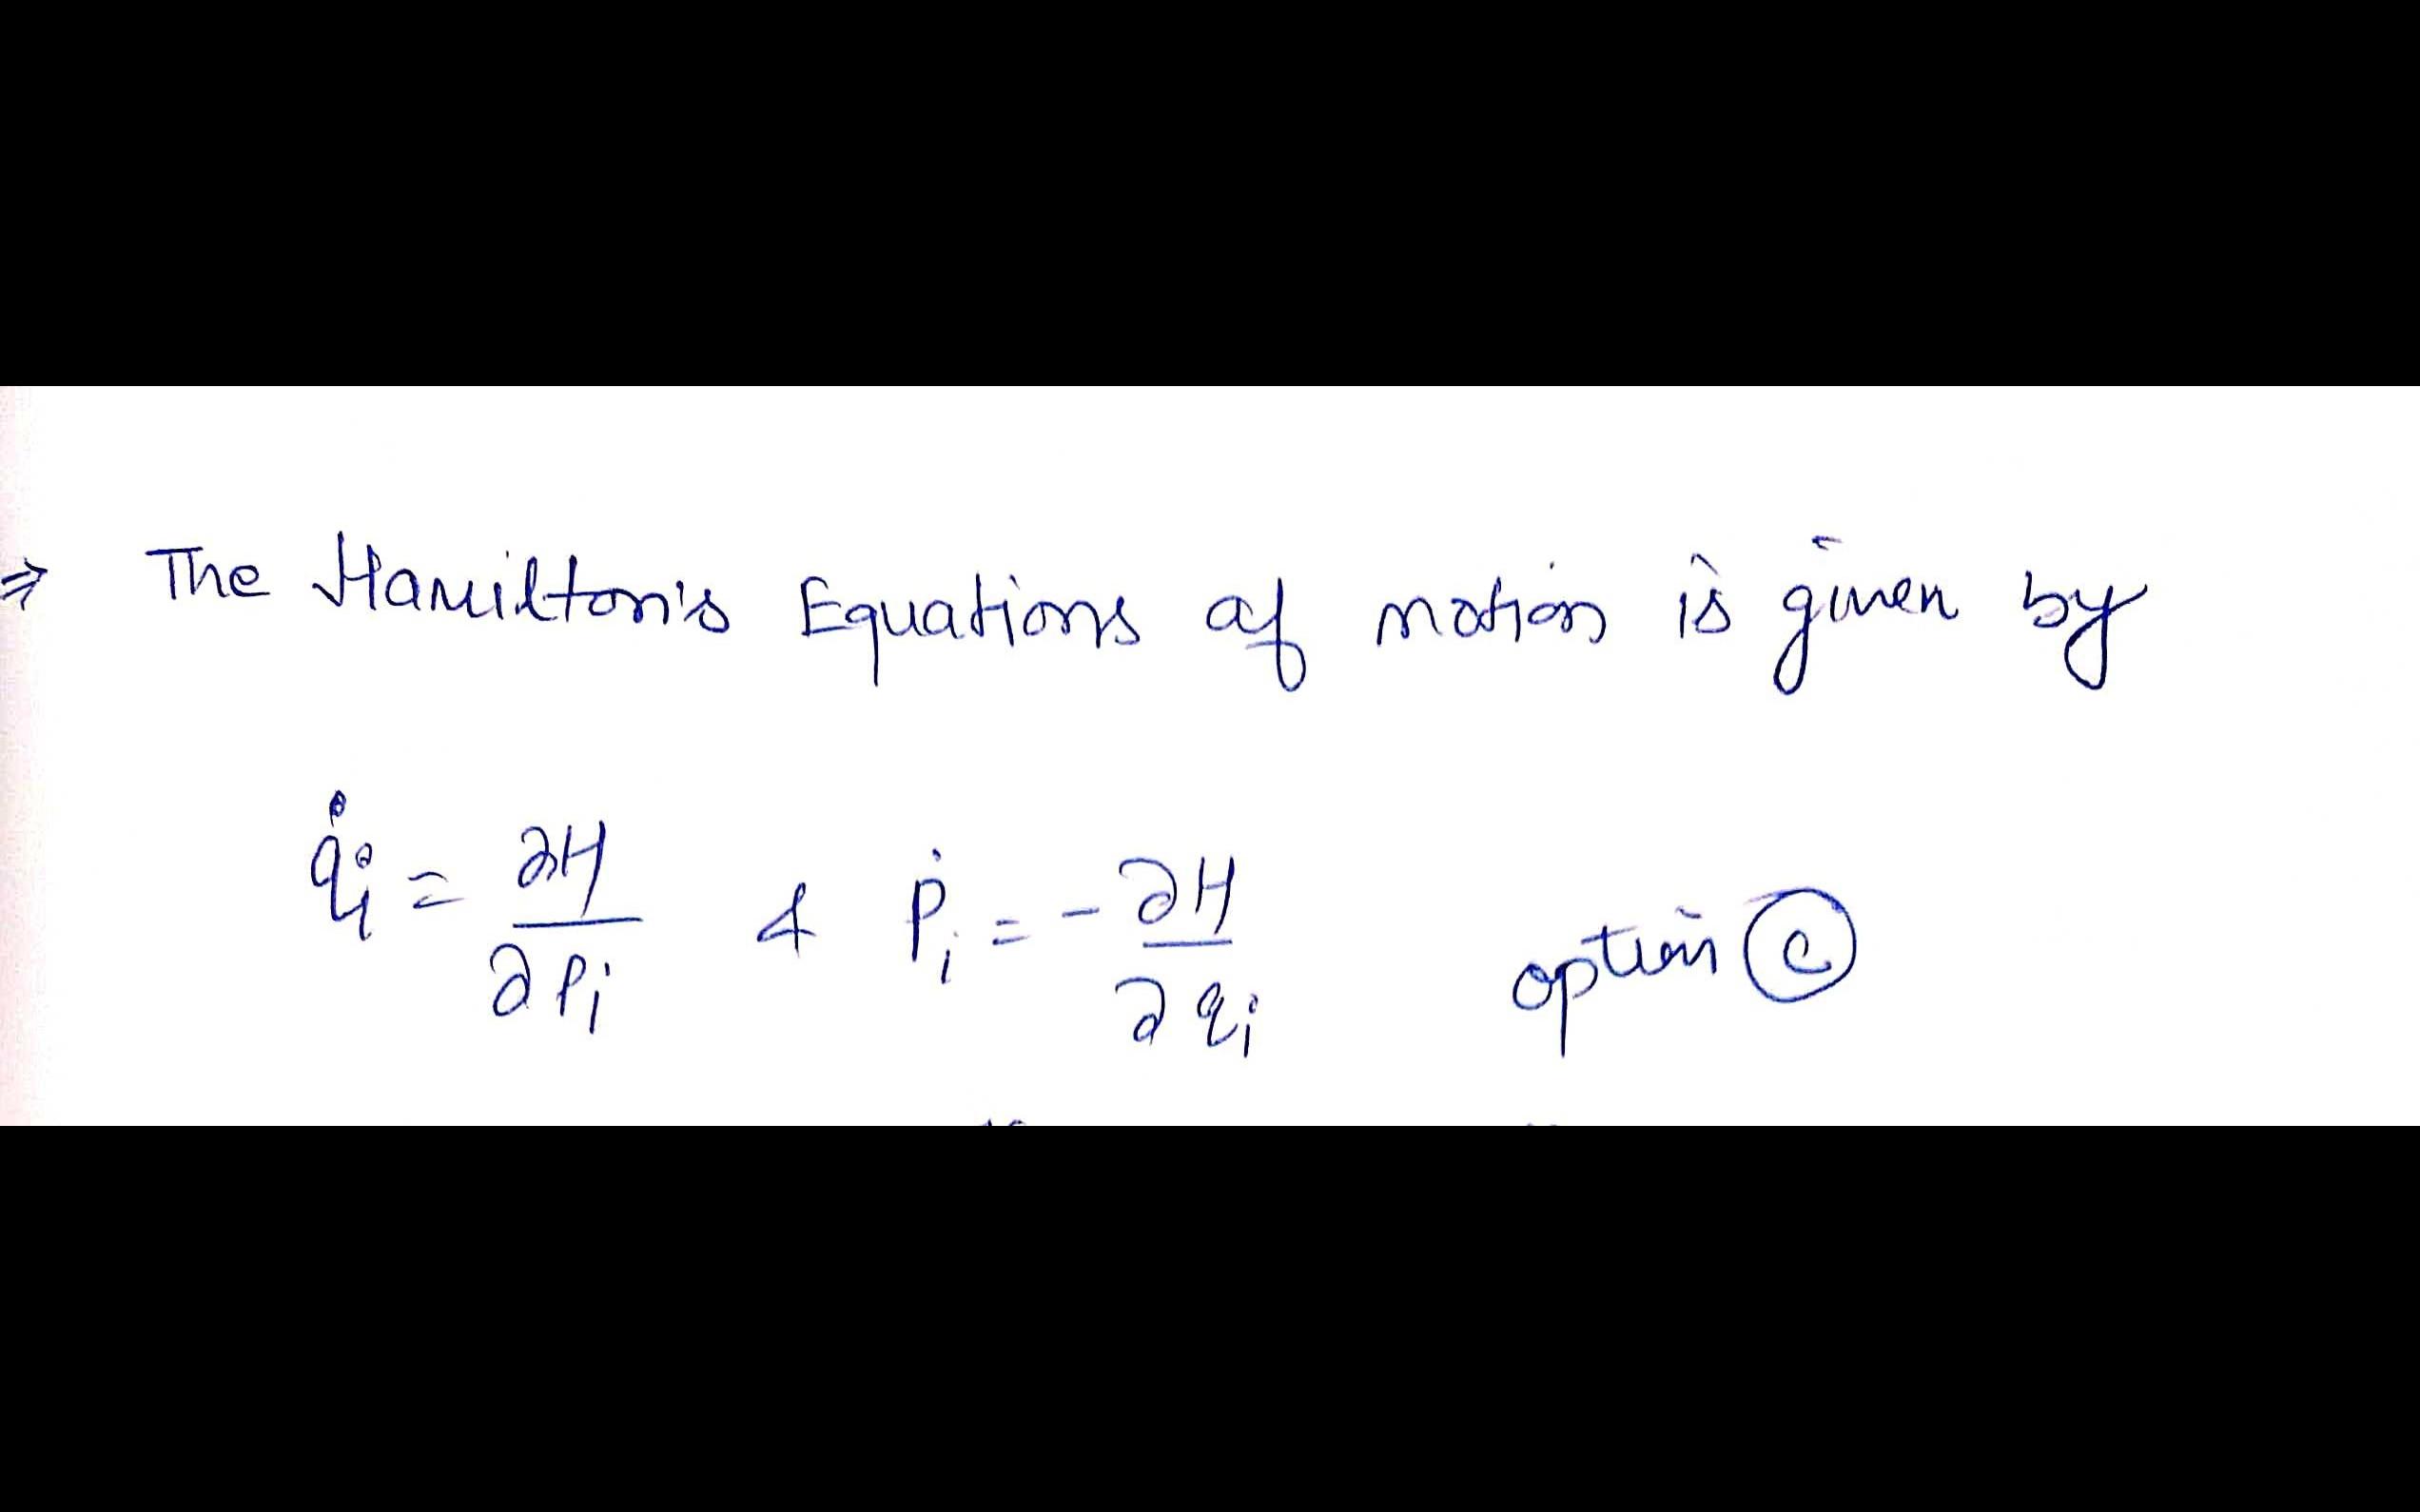 ⇒ The Hamilton's Equations of motion is given by
q̇ᵢ = ∂H/∂pᵢ & ṗᵢ = -∂H/∂qᵢ option ⓒ